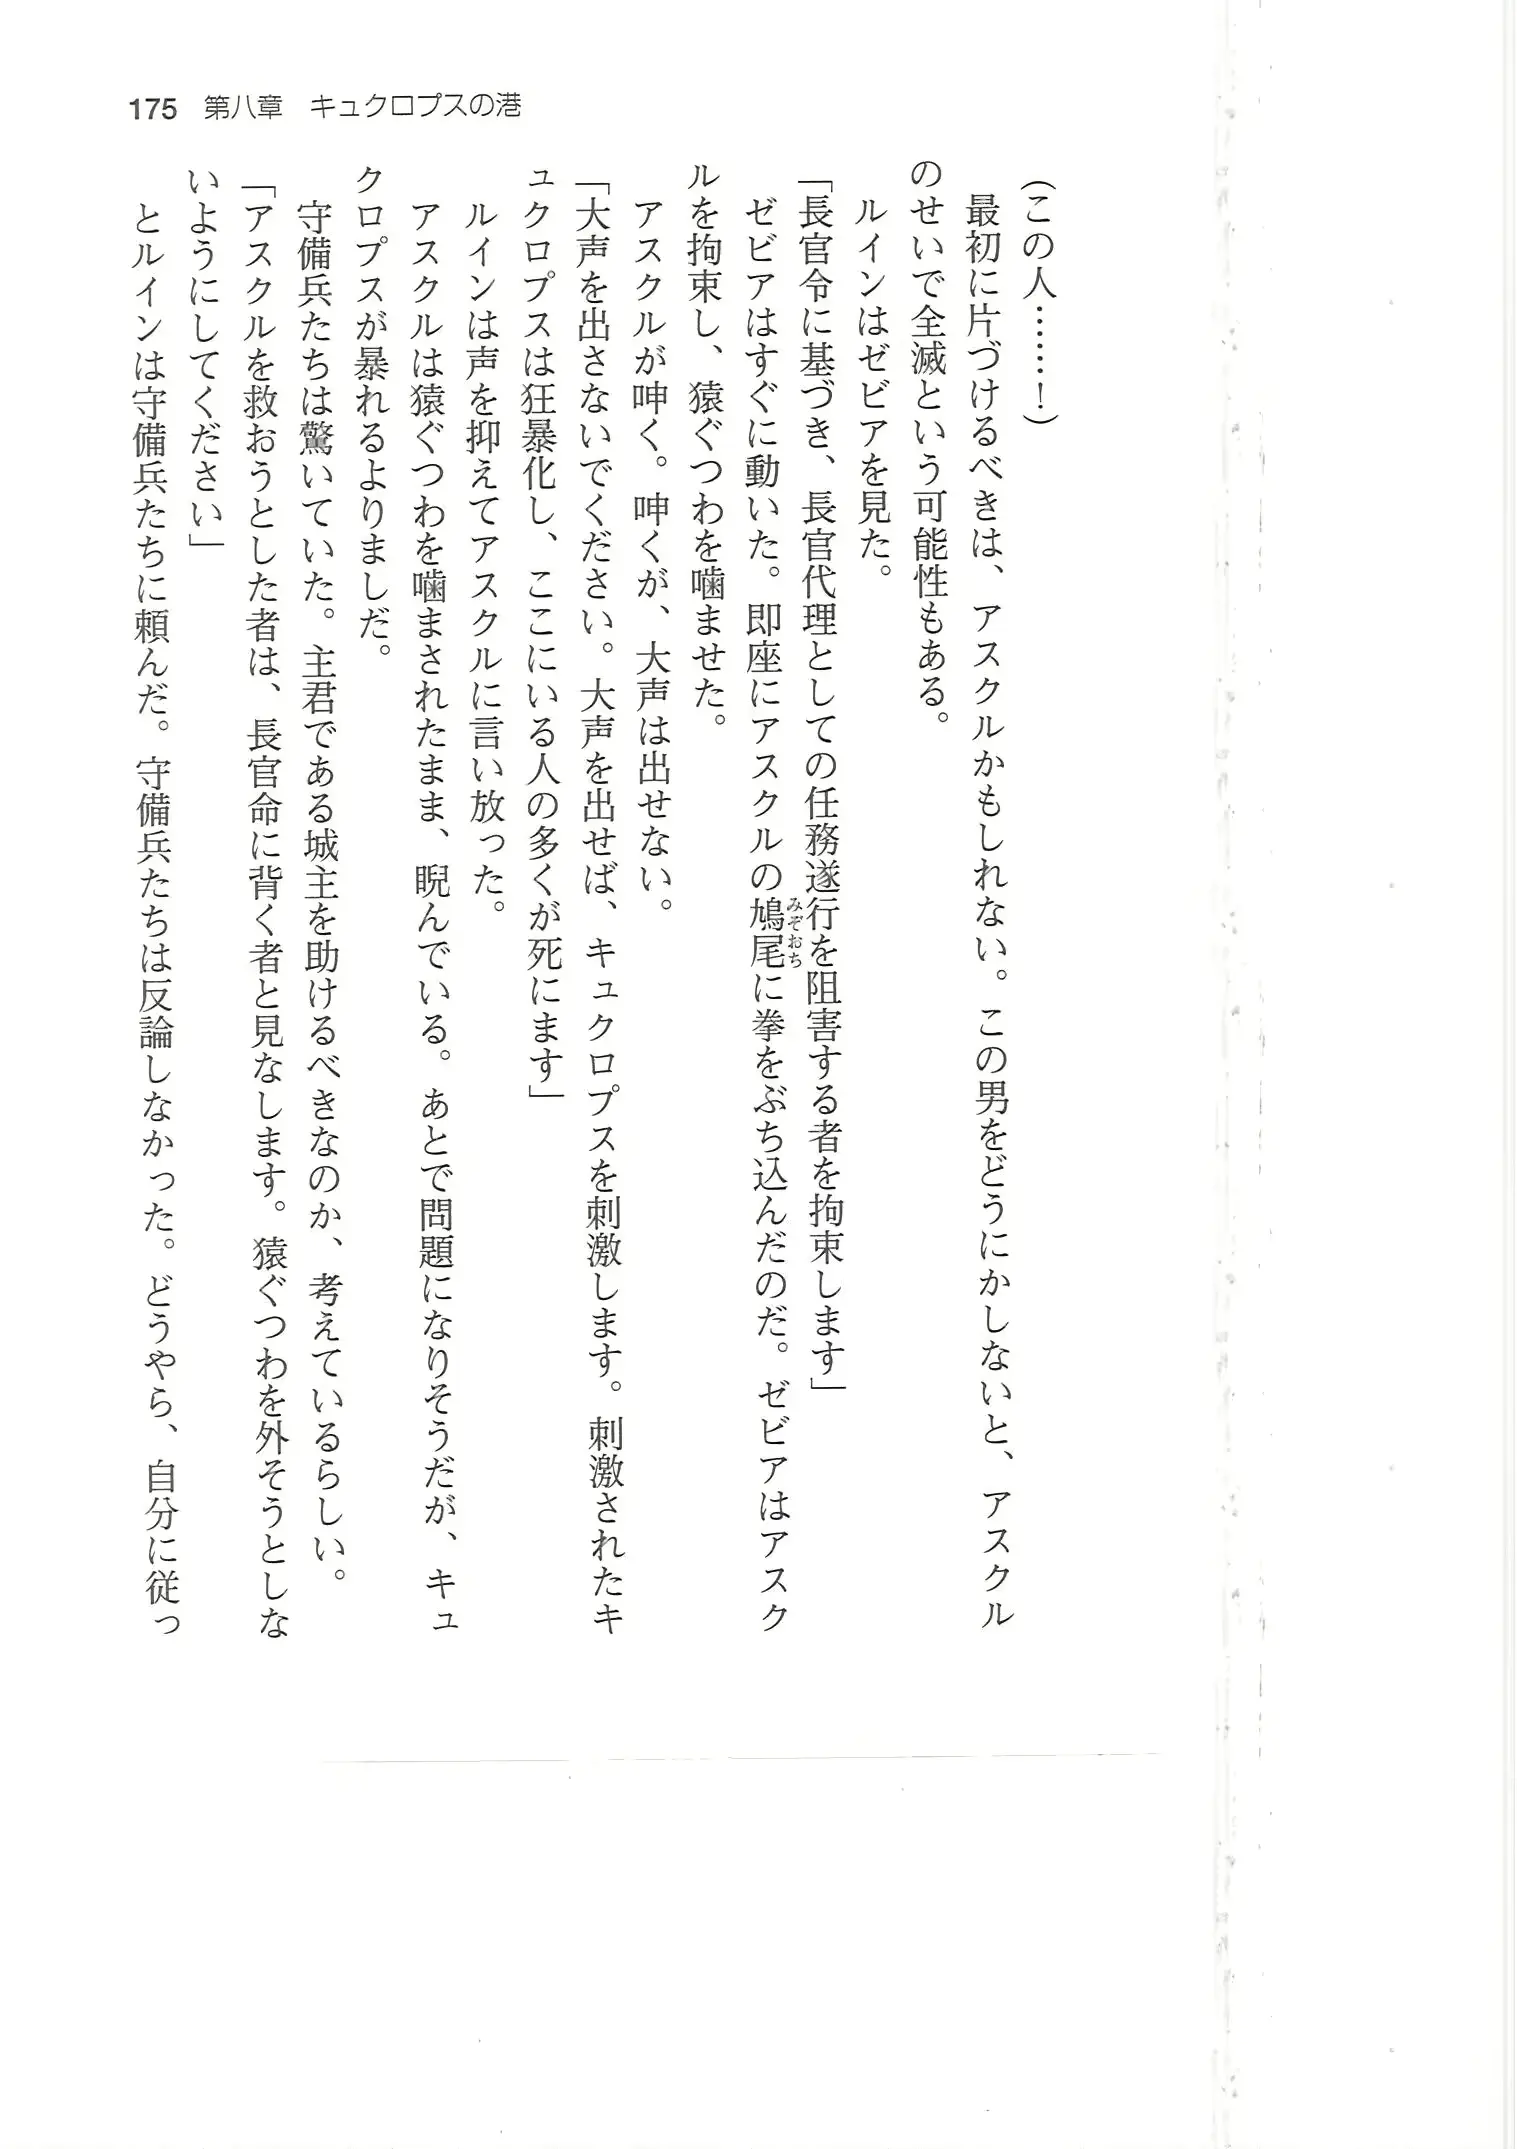 175 第八章 キュクロプスの港
(この人……!)
最初に片づけるべきは、アスクルかもしれない。この男をどうにかしないと、アスクル
のせいで全滅という可能性もある。
ルインはゼビアを見た。
「長官令に基づき、長官代理としての任務遂行を阻害する者を拘束します」
ゼビアはすぐに動いた。即座にアスクルの鳩尾に拳をぶち込んだのだ。ゼビアはアスク
みぞおち
ルを拘束し、猿ぐつわを噛ませた。
アスクルが呻く。呻くが、大声は出せない。
「大声を出さないでください。大声を出せば、キュクロプスを刺激します。刺激されたキ
ュクロプスは狂暴化し、ここにいる人の多くが死にます」
ルインは声を抑えてアスクルに言い放った。
アスクルは猿ぐつわを噛まされたまま、睨んでいる。あとで問題になりそうだが、キュ
クロプスが暴れるよりましだ。
守備兵たちは驚いていた。主君である城主を助けるべきなのか、考えているらしい。
「アスクルを救おうとした者は、長官命に背く者と見なします。猿ぐつわを外そうとしな
いようにしてください」
とルインは守備兵たちに頼んだ。守備兵たちは反論しなかった。どうやら、自分に従っ